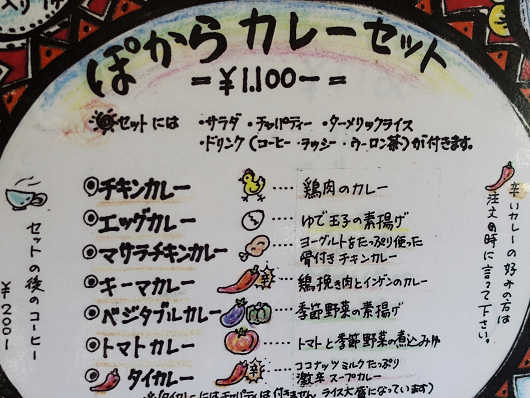 ぽからカレーセット
=¥1,100-=
セットには ・サラダ ・チャパティー ・ターメリックライス
・ドリンク(コーヒー・ラッシー・ウーロン茶)が付きます。
◎チキンカレー ・・・・鶏肉のカレー
◎エッグカレー ・・・・ゆで玉子の素揚げ
◎マサラチキンカレー ・・・ヨーグルトをたっぷり使った
骨付きチキンカレー
◎キーマカレー 辛 ・・・鶏挽き肉とインゲンのカレー
◎ベジタブルカレー ・・・季節野菜の素揚げ
◎トマトカレー ・・・トマトと季節野菜の煮込み
◎タイカレー 辛 ・・・ココナッツミルクたっぷり
激辛スープカレー
(タイカレーにはチャパティは付きません ライス大盛になっています)
辛いカレーの好みの方は
注文の時に言って下さい。
セットの後のコーヒー
¥200-
入り